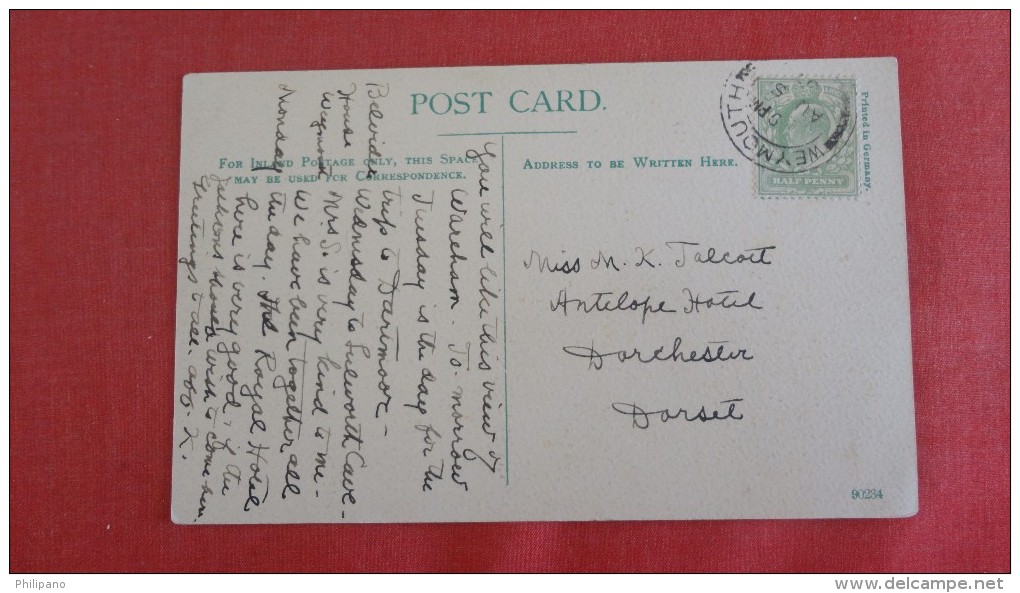 POST CARD.
FOR INLAND POSTAGE ONLY, THIS SPACE
MAY BE USED FOR CORRESPONDENCE.
ADDRESS TO BE WRITTEN HERE.
Printed in Germany.
WEYMOUTH
5 PM
AU
HALF PENNY
Belvidere
House
Weymouth
Monday
You will like this view of
Wareham. To-morrow
Tuesday is the day for the
trip to Dartmoor-
Wednesday to Lulworth Cove-
Mrs S. is very kind to me-
We have been together all
the day. The Royal Hotel
here is very good, if the
Jacksons should wish to come here.
Greetings to all. K.
Miss M. K. Talcott
Antelope Hotel
Dorchester
Dorset
90234
Philipano
www.delcampe.net